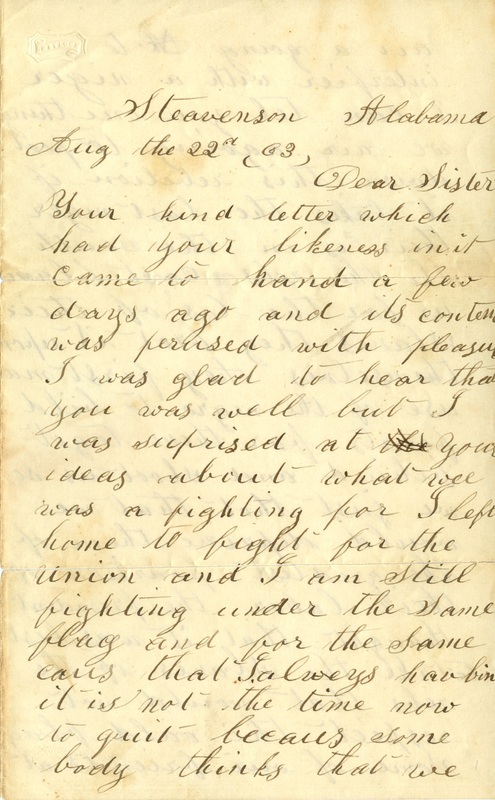 Steavenson Alabama
Aug the 22nd, 63,
Dear Sister
Your kind letter which
had your likeness in it
came to hand a few
days ago and its conten
was perused with pleasu
I was glad to hear tha
you was well but I
was suprised at the your
ideas about what wee
was a fighting for I left
home to fight for the
union and I am still
fighting under the same
flag and for the same
caus that I alweys hav bin
it is not the time now
to quit becaus some
body thinks that we